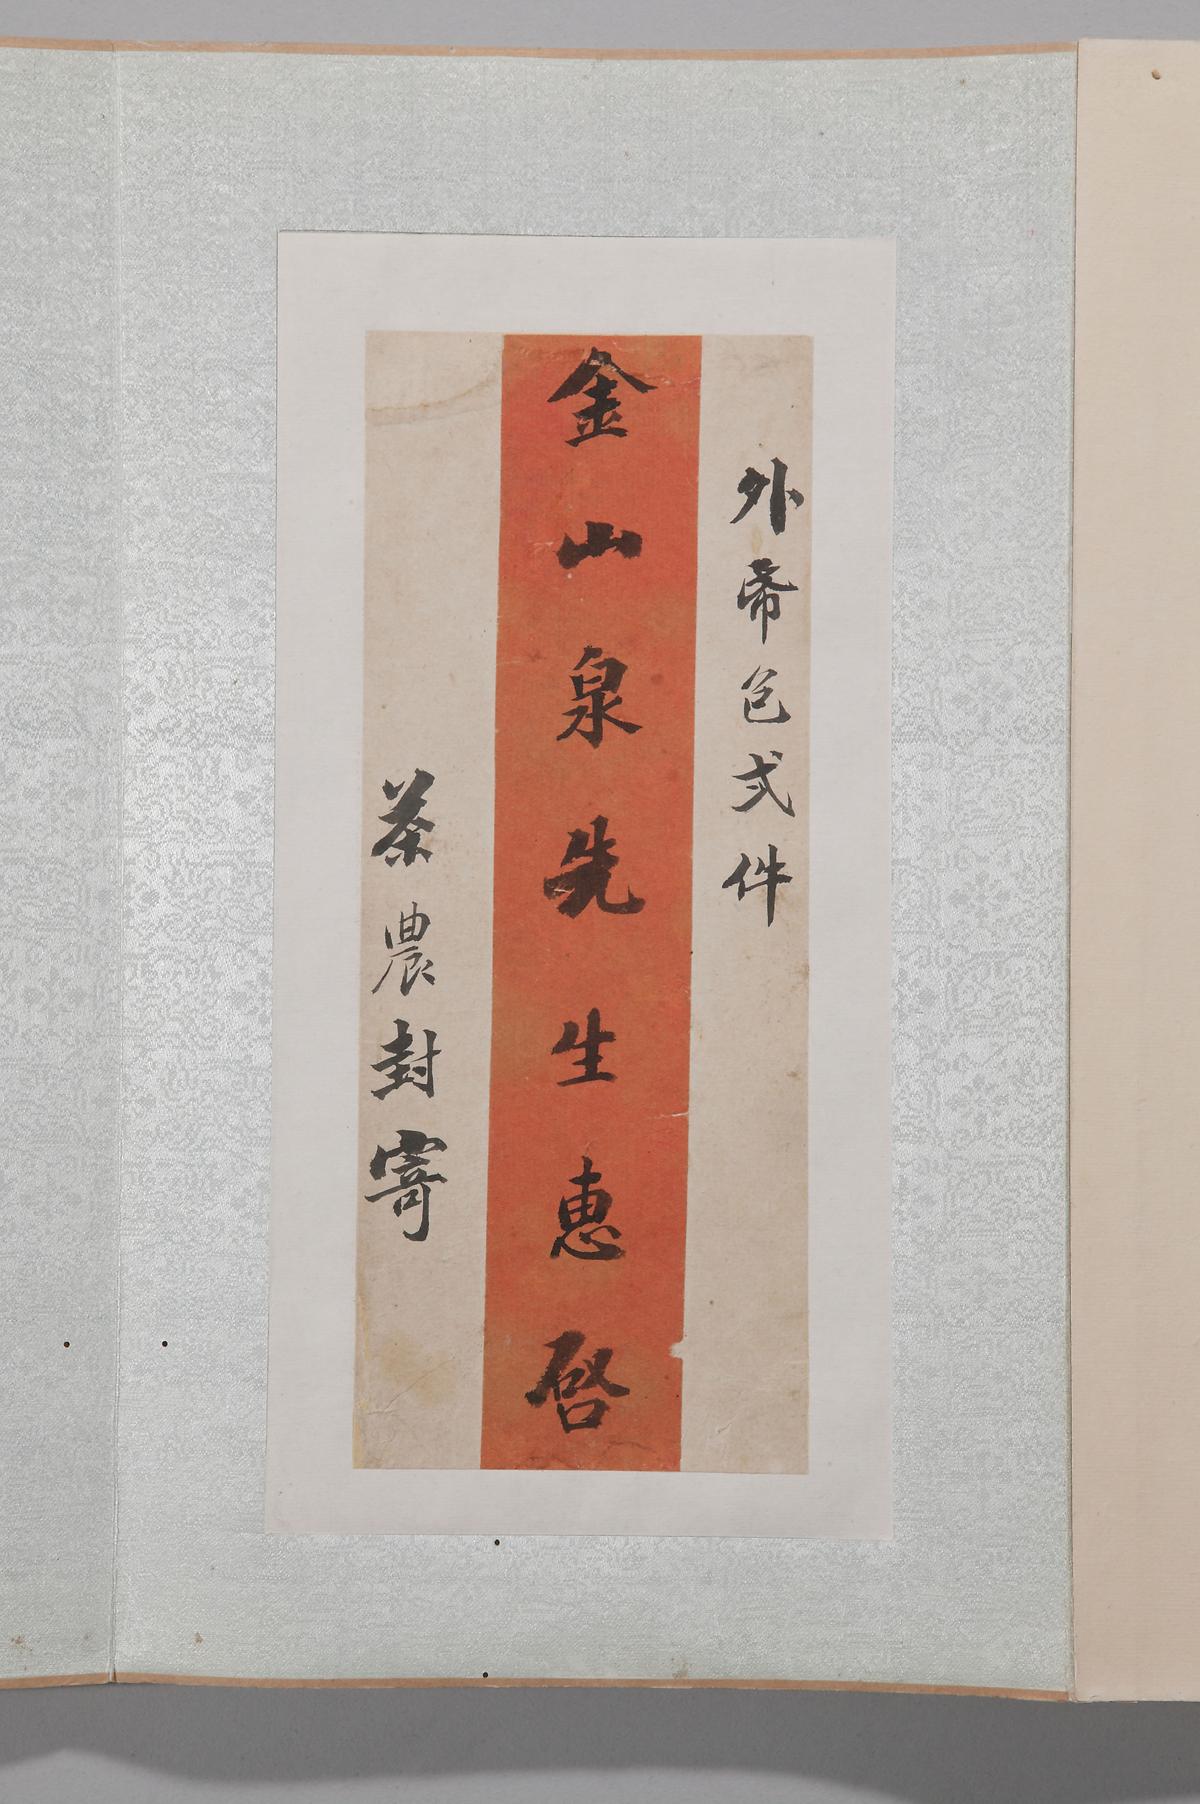 外帋包弍件
金山泉先生惠啓
茶農封寄